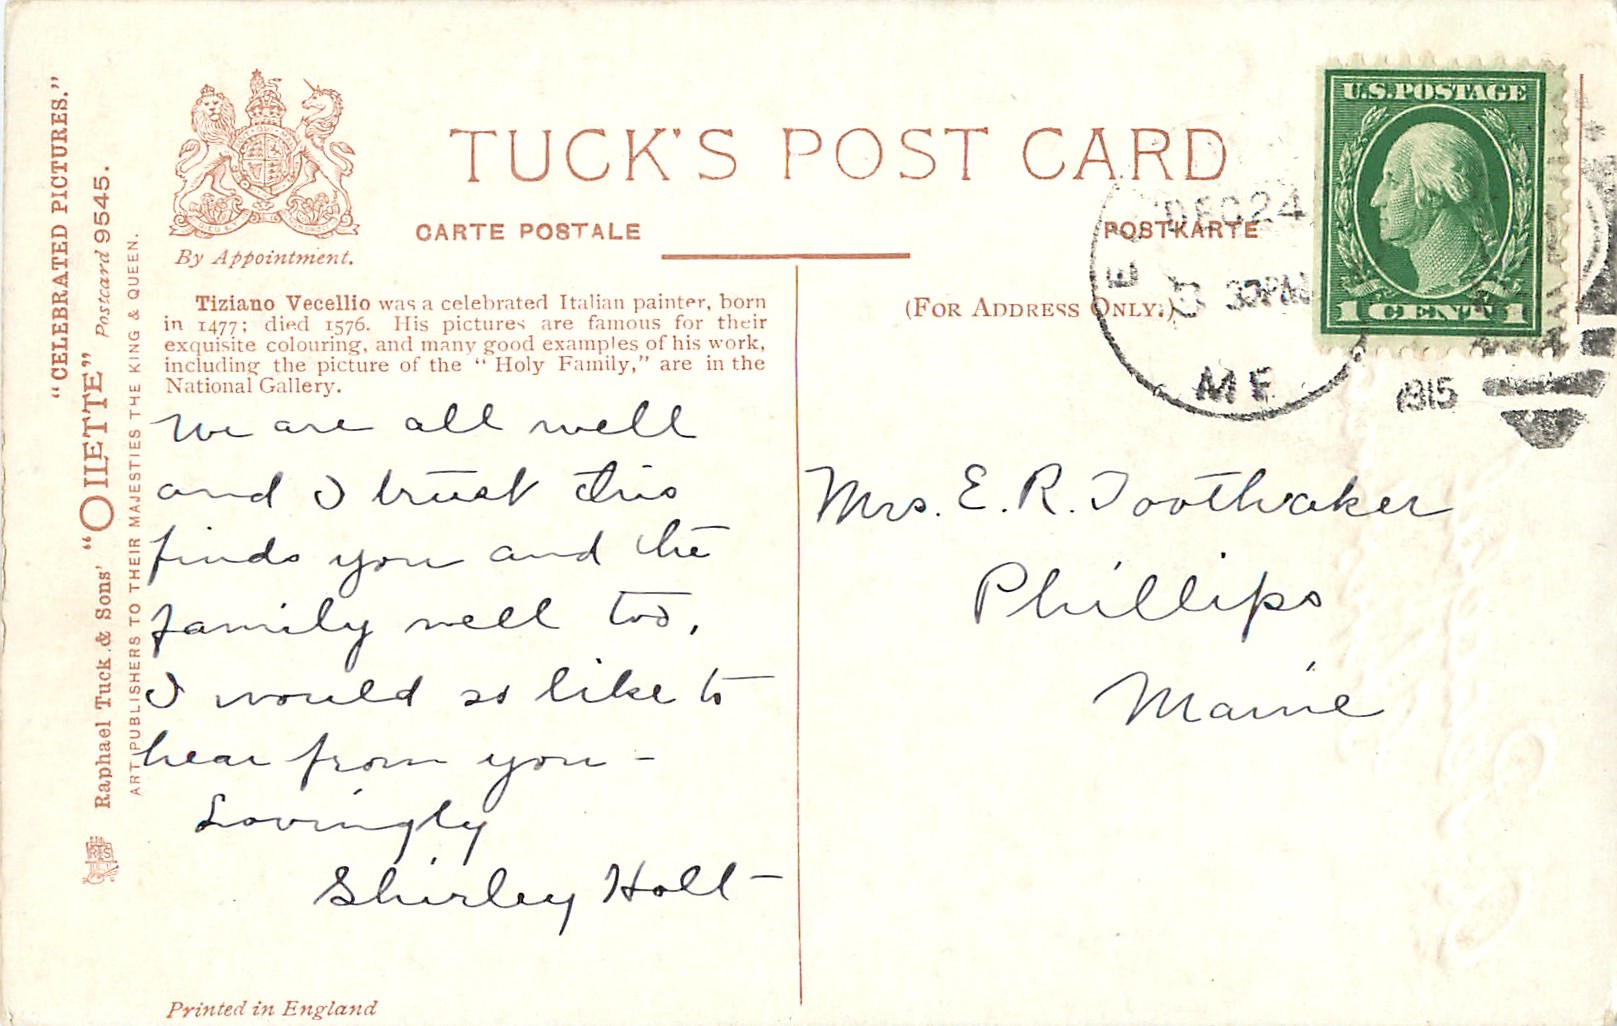 "CELEBRATED PICTURES."
Raphael Tuck & Sons' "OILETTE" Postcard 9545.
ART PUBLISHERS TO THEIR MAJESTIES THE KING & QUEEN.
By Appointment.
TUCK'S POST CARD
CARTE POSTALE
POSTKARTE
Tiziano Vecellio was a celebrated Italian painter, born
in 1477; died 1576. His pictures are famous for their
exquisite colouring, and many good examples of his work,
including the picture of the "Holy Family," are in the
National Gallery.
We are all well
and I trust this
finds you and the
family well too,
I would so like to
hear from you -
Lovingly
Shirley Holt -
Printed in England
(FOR ADDRESS ONLY.)
U.S. POSTAGE
1 CENT 1
DEC 24
30 PM
ME
1915
Mrs. E. R. Toothaker
Phillips
Maine